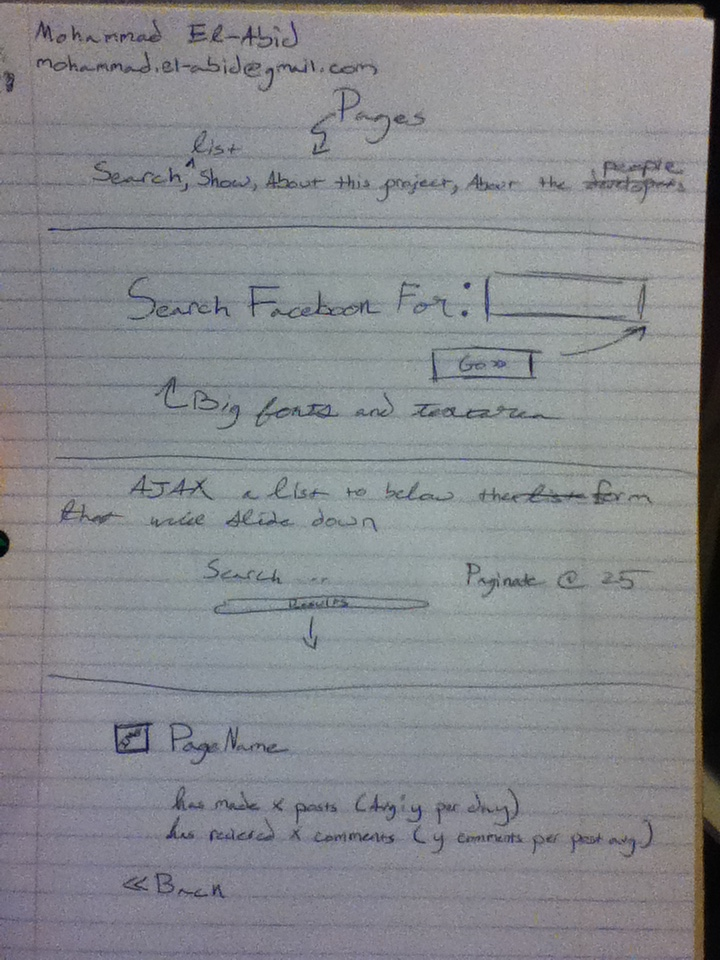 Mohammad El-Abid
mohammad.el-abid@gmail.com
Pages
list
people
Search, Show, About this project, About the developers
Search Facebook For:
Go »
Big fonts and textarea
AJAX a list to below the list form
that will slide down
Search ..
Paginate @ 25
Results
PageName
has made x posts (Avg: y per day)
has recieved x comments (y comments per post avg.)
« Back